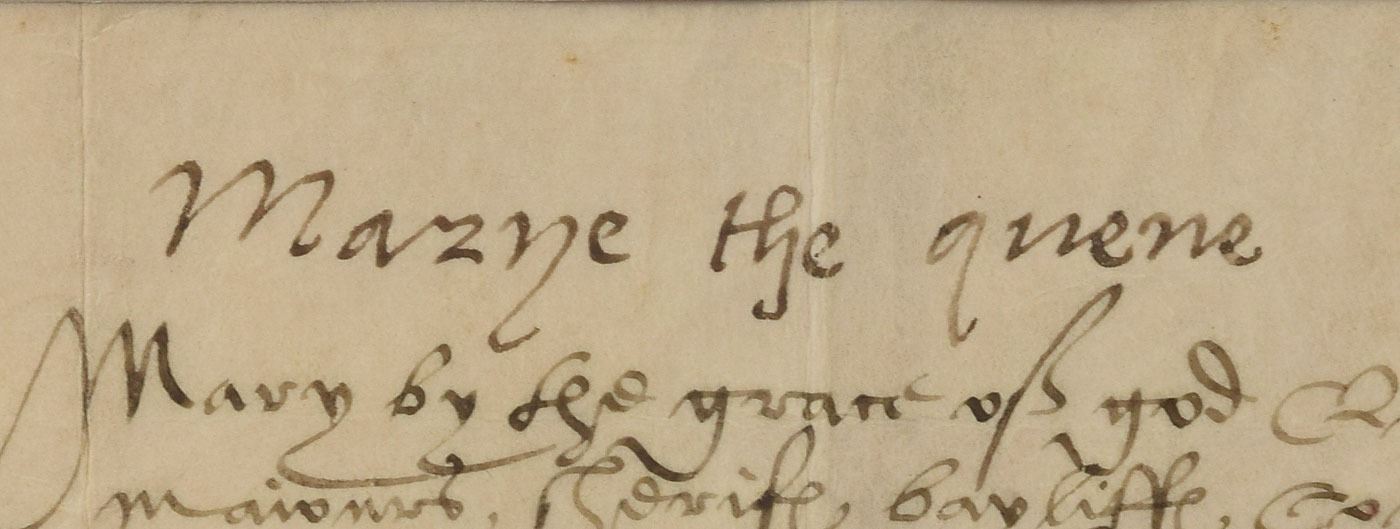 Marye the quene
Mary by the grace off god Q
maiours, sherifs, bayliffs,